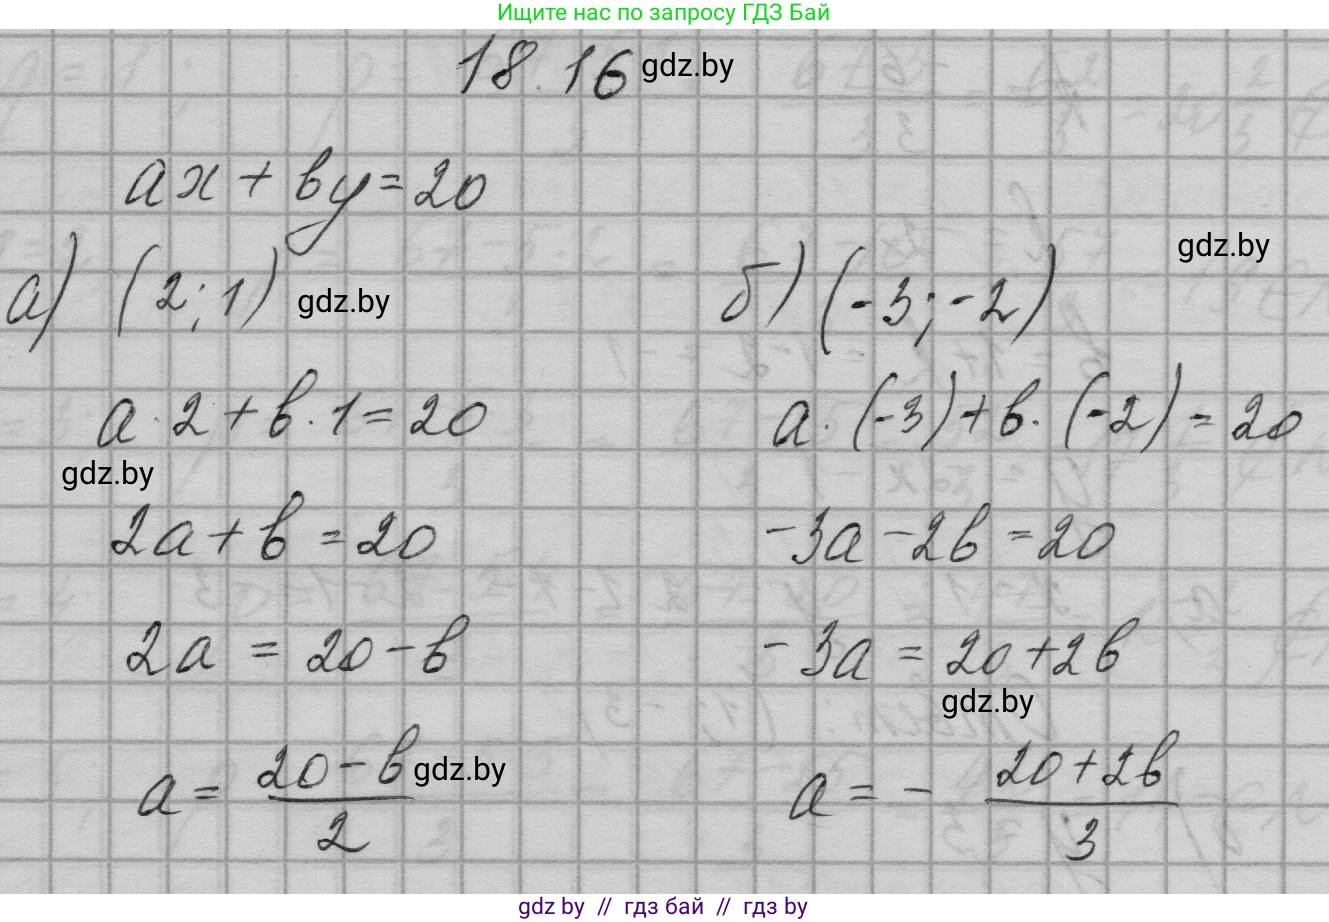 Ищите нас по запросу ГДЗ Бай
18.16 gdz.by
ax + by = 20
gdz.by
а) (2; 1) gdz.by
б) (-3; -2)
a · 2 + b · 1 = 20
a · (-3) + b · (-2) = 20
gdz.by
2a + b = 20
-3a - 2b = 20
2a = 20 - b
-3a = 20 + 2b
gdz.by
a = \frac{20 - b}{2} gdz.by
a = - \frac{20 + 2b}{3}
gdz by // гдз бай // гдз by